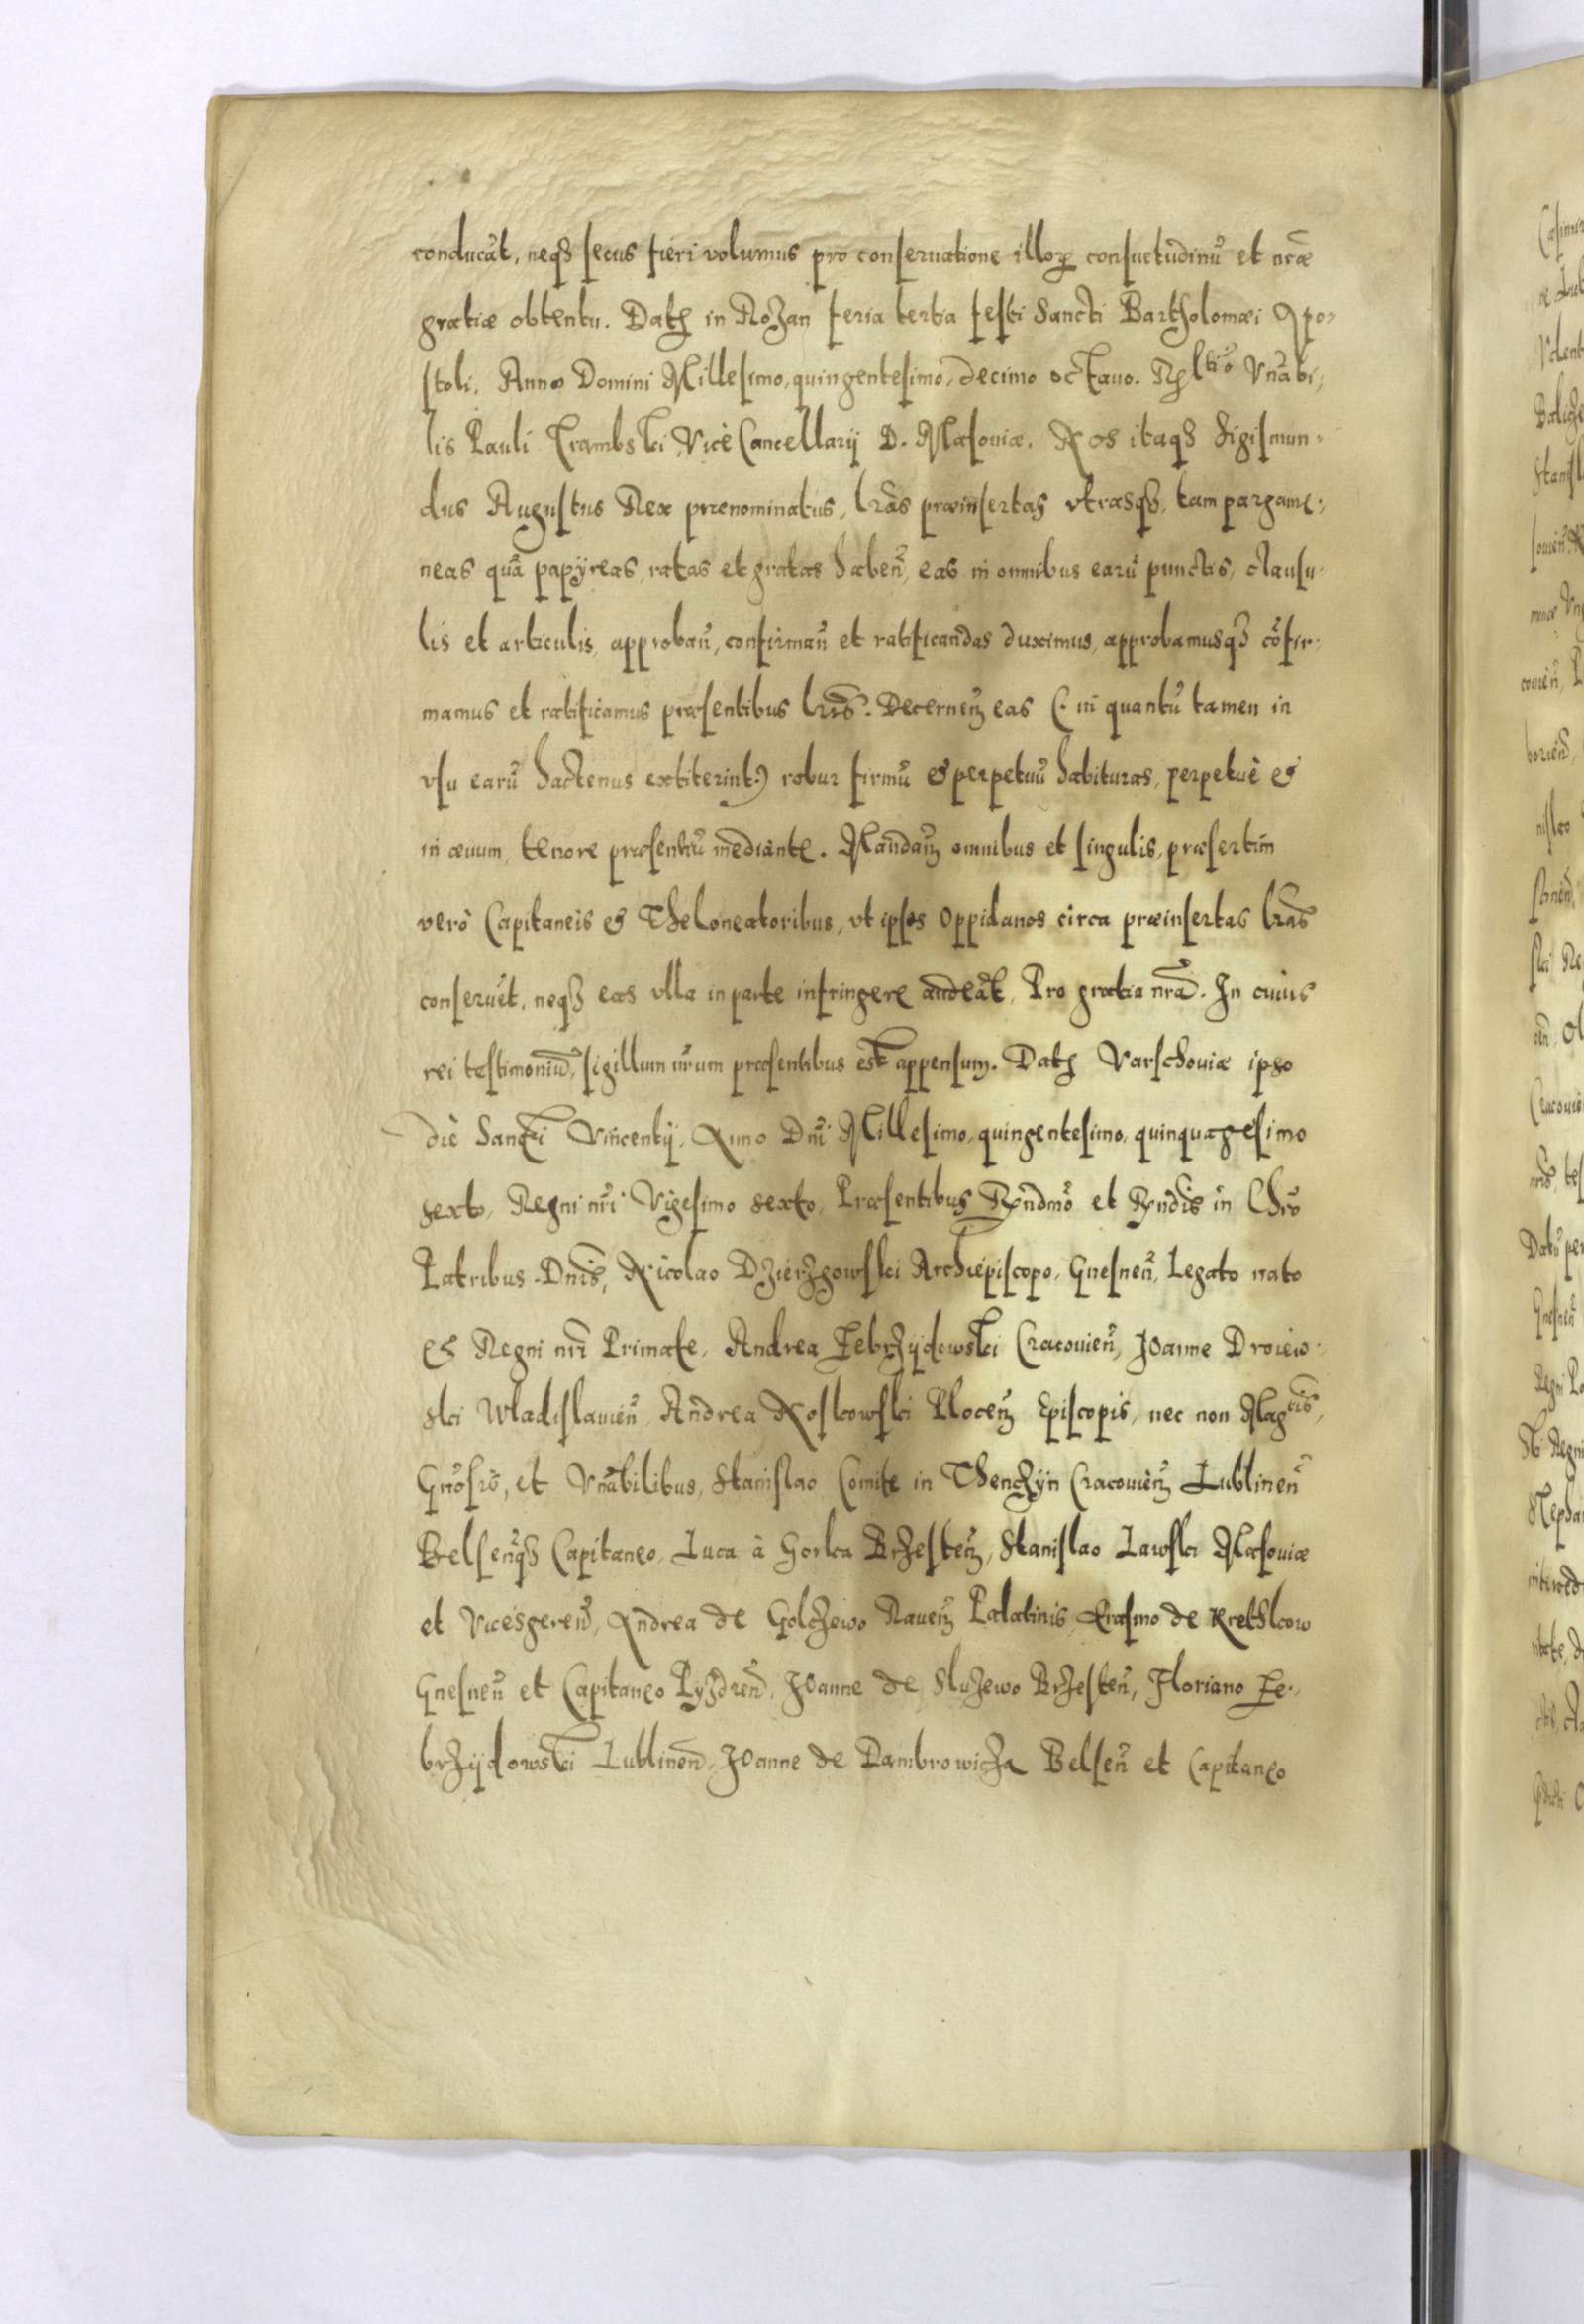 conducāt, neqȝ secus fieri volumus pro conseruatione illoꝝ consuetudinū et nr̄æ
gratiæ obtentu. Datꝭ in Rozan feria tertia festi Sancti Bartholomæi Apo⸗
stoli. Anno Domini Millesimo, quingentesimo, decimo octauo. Rel̄tio Vn̄abi⸗
lis Pauli Vice Cancellarij D. Masouiæ. Nos itaqȝ Sigismun⸗
dus Augustus Rex prænominatus, lr̄as præinsertas vtrasqȝ, tam pargame⸗
neas quā papÿreas, ratas et gratas haben̄, eas in omnibus earū punctis, clausu⸗
lis et articulis, approban̄, confirman̄ et ratificandas duximus, approbamusqȝ cōfir⸗
mamus et ratificamus præsentibus lr̄is. Decernen̄ eas (: in quantū tamen in
vsu earū hactenus extiterint :) robur firmū & perpetuū habituras, perpetuè &
in æuum, tenore præsentiū mediante. Mandan̄ omnibus et singulis, præsertim
verò Capitaneis & Theloneatoribus, vt ipsos Oppidanos circa præinsertas lr̄as
conseruēt, neqȝ eas vlla in parte infringere audeāt, Pro gratia nr̄a. In cuius
rei testimoniū, sigillum nr̄um præsentibus est appensum. Datꝭ Varschouiæ ipso
die Sancti Vincentij, Anno Dn̄i Millesimo, quingentesimo, quinquagesimo
sexto, Regni nr̄i Vigesimo sexto, Præsentibus Rn̄dmō et Rn̄dis in Chr̄o
Patribus Dn̄is, Nicolao Dzierzgowski Archiepiscopo Gnesnen̄, Legato nato
& Regni nr̄i Primate, Andrea Zebrzÿdowski Cracouien̄, Joanne Droiew⸗
ski Wladislauien̄, Andrea Noskowski Plocen̄ Episcopis, nec non Magcis,
Gn̄osis, et Vn̄abilibus, Stanislao Comite in Thenczÿn Cracouien̄ Lublinen̄
Belsen̄qȝ Capitaneo, Luca à Gorka Brzesten̄, Stanislao Lawski Masouiæ
et Vicesgeren̄, Andrea de Golczewo Rauen̄ Palatinis, Erasmo de Krethkow
Gnesnen̄ et Capitaneo Pyzdren̄, Joanne de Sluzewo Brzesten̄, Floriano Ze⸗
brzÿdowski Lublinen̄, Joanne de Dambrowicza Belsen̄ et Capitaneo